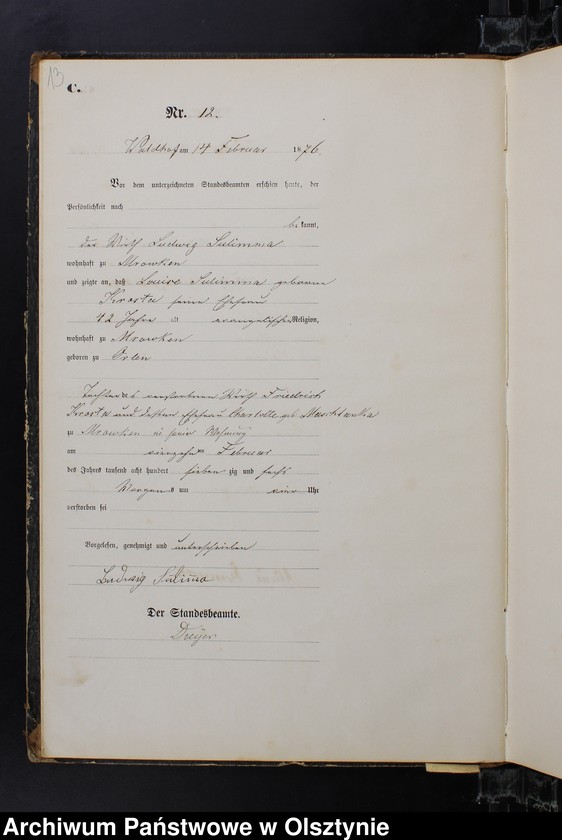 13
C.
Nr. 12.
Waldhof am 14 Februar 1876.
Vor dem unterzeichneten Standesbeamten erschien heute, der
Persönlichkeit nach
bekannt,
der Wirth Ludwig Sulimma
wohnhaft zu Mrowken
und zeigte an, daß Louise Sulimma geborene
Krosta seine Ehefrau
42 Jahre alt evangelischer Religion,
wohnhaft zu Mrowken
geboren zu Orlen
Tochter des verstorbenen Wirth Friedrich
Krosta und dessen Ehefrau Charlotte geb.
zu Mrowken in seiner Wohnung
am vierzehnten Februar
des Jahres tausend acht hundert sieben zig und sechs
Morgens um vier Uhr
verstorben sei
Vorgelesen, genehmigt und unterschrieben
Ludwig Sulima
Der Standesbeamte.
Dreÿer
Archiwum Państwowe w Olsztynie